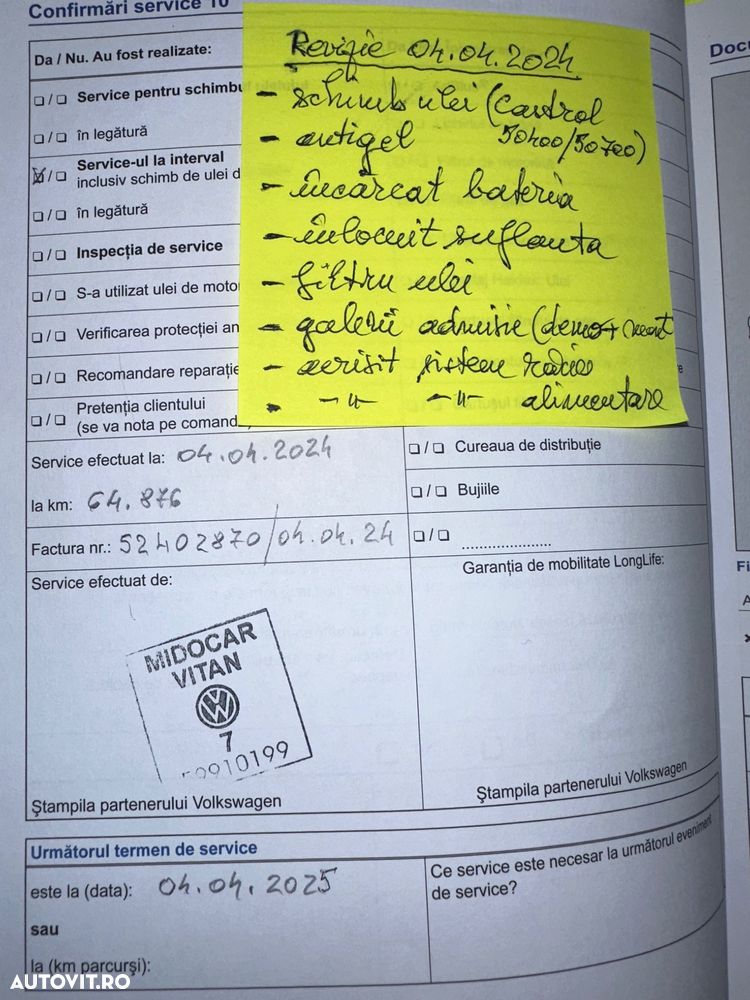 Confirmări service 10
Docu
Da / Nu. Au fost realizate:
Service pentru schimbu
în legătură
Service-ul la interval
inclusiv schimb de ulei d
în legătură
Inspecția de service
S-a utilizat ulei de moto
Verificarea protecției an
Recomandare reparație
Pretenția clientului
(se va nota pe comand
Revizie 04.04.2024
- schimb ulei (Castrol
- antigel 50400/50700)
- încărcat bateria
- înlocuit suflanta
- filtru ulei
- galerii admisie (demo+mont
- aerisit sistem răcire
- -"- -"- alimentare
Service efectuat la: 04.04.2024
la km: 64.876
Factura nr.: 52402870/04.04.24
Service efectuat de:
MIDOCAR
VITAN
7
0910199
Ștampila partenerului Volkswagen
Cureaua de distribuție
Bujiile
....................
Garanția de mobilitate LongLife:
Ștampila partenerului Volkswagen
Fi
A
Următorul termen de service
este la (data): 04.04.2025
sau
la (km parcurși):
Ce service este necesar la următorul eveniment
de service?
AUTOVIT.RO